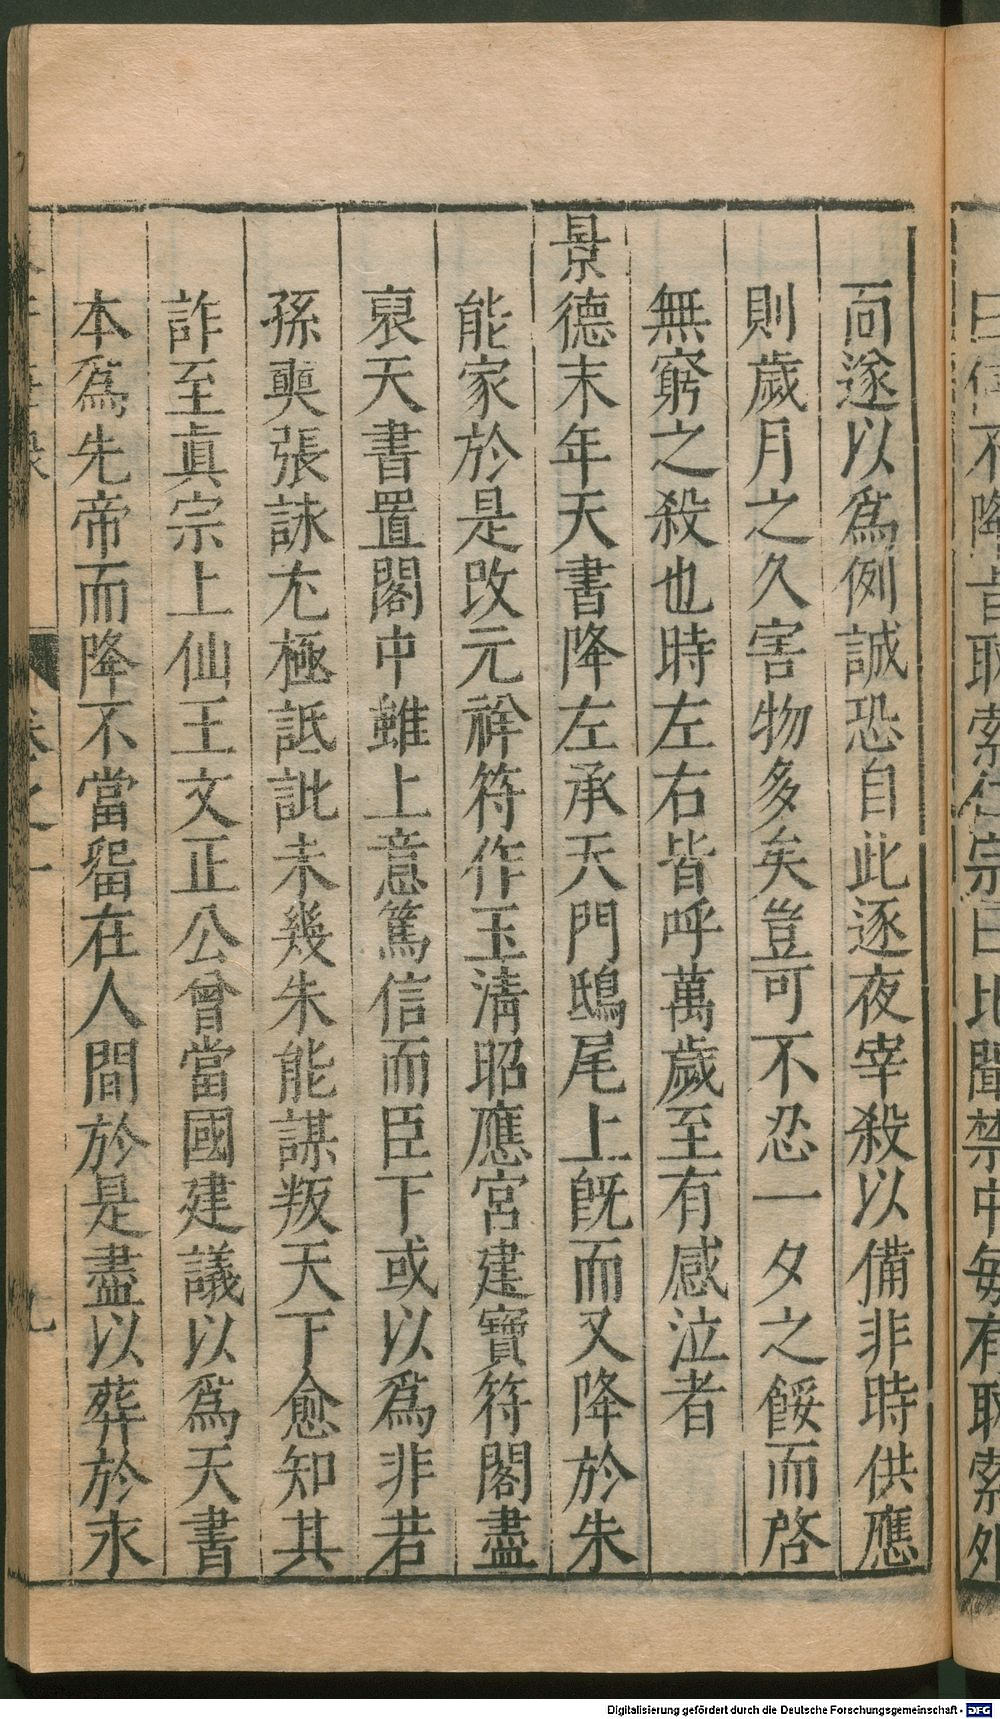 曰
不降
取索仁宗曰比聞禁中每有取索外
靣遂以爲例誠恐自此逐夜宰殺以備非時供應
則歲月之久害物多矣豈可不忍一夕之餒而啓
無窮之殺也時左右皆呼萬歲至有感泣者
景德末年天書降左承天門鴟尾上旣而又降於朱
能家於是改元祥符作玉清昭應宮建寶符閣盡
裒天書置閣中雖上意篤信而臣下或以爲非若
孫奭張詠尤極詆訾未幾朱能謀叛天下愈知其
詐至眞宗上仙王文正公曾當國建議以爲天書
本爲先帝而降不當留在人間於是盡以葬於永
卷之一
九
Digitalisierung gefördert durch die Deutsche Forschungsgemeinschaft - DFG